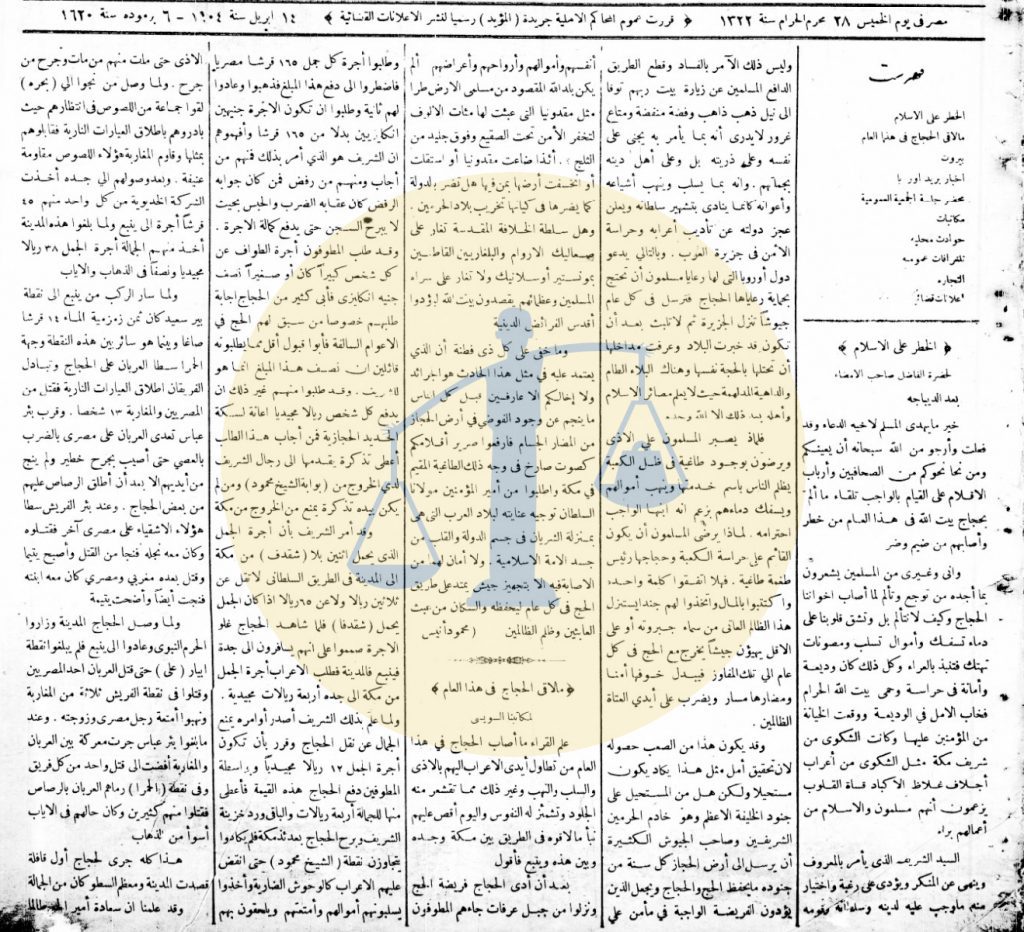 مصر فى يوم الخميس ٢٨ محرم الحرام سنة ١٣٢٢
﴿ قررت عموم المحاكم الاهلية جريدة ( المؤيد ) رسميا لنشر الاعلانات القضائية ﴾
١٤ ابريل سنة ١٩٠٤ – ٦ برموده سنة ١٦٢٠
فهرست
الخطر على الاسلام
مالاقى الحجاج فى هذا العام
بيروت
اخبار بريد اوربا
محضر جلسة الجمعية العمومية
مكاتبات
حوادث محليه
تلغرافات عموميه
التجاره
اعلانات قضائيه
﴿ الخطر على الاسلام ﴾
لحضرة الفاضل صاحب الامضاء
بعد الديباجه
خير مايهدى المسلم لاخيه الدعاء وقد
فعلت وأرجو من الله سبحانه أن يعينكم
ومن نحا نحوكم من الصحافيين وأرباب
الاقلام على القيام بالواجب تلقاء ما ألم
بحجاج بيت الله فى هذا العام من خطر
وأصابهم من ضيم وضر
وانى وغيرى من المسلمين يشعرون
بما أجده من توجع وتألم لما أصاب اخواننا
الحجاج وكيف لا نتألم بل وتشق قلوبنا على
دماء تسفك وأموال تسلب ومصونات
تهتك فتنبذ بالعراء وكل ذلك كان وديعة
وأمانة فى حراسة وحمى بيت الله الحرام
فخاب الامل فى الوديعة ووقعت الخيانة
من المؤتمنين عليها وكانت الشكوى من
شريف مكة مثل الشكوى من أعراب
أجلاف غلاظ الاكباد قساة القلوب
يزعمون أنهم مسلمون والاسلام من
أعمالهم براء
السيد الشريف الذى يأمر بالمعروف
وينهى عن المنكر ويؤدى على رغبة واختيار
منه ماوجب عليه لدينه وسلطانه وقومه
وليس ذلك الآمر بالفساد وقطع الطريق
الدافع المسلمين عن زيارة بيت ربهم توقا
الى نيل ذهب ذاهب وفضة منفضة ومتاع
غرور لايدرى أنه بما يأمر به يجنى على
نفسه وعلى ذريته بل وعلى أهل دينه
بجملتهم . وانه بما يسلب وينهب أشياعه
وأعوانه كانما ينادى بتشهير سلطانه ويعلن
عجز دولته عن تأديب أعرابه وحراسة
الأمن فى جزيرة العرب . وبالتالى يدعو
دول أوروبا التى لها رعايا مسلمون أن تحتج
بحماية رعاياها الحجاج فترسل فى كل عام
جيوشا تنزل الجزيرة ثم لا تلبث بعد أن
تكون قد خبرت البلاد وعرفت مداخلها
أن تحتلها بالحجة نفسها وهناك البلاء الطام
والداهية المدلهمة حيث لا يعلم مصائر الاسلام
وأهله بعد ذلك الا الله وحده
فلماذا يصبر المسلمون على الاذى
ويرضون بوجود طاغية فى ظلل الكعبة
يظلم الناس باسم خدمتها وينهب أموالهم
ويسفك دماءهم بزعم انه ابنها الواجب
احترامه . لماذا يرضى المسلمون أن يكون
القائم على حراسة الكعبة وحجاجها رئيس
طغمة طاغية . فهلا اتفقوا كلمة واحده
واكتتبوا بالمال واتخذوا لهم جندا يستنزل
هذا الظالم العاتى من سماء جبروته أو على
الاقل يهيؤن جيشا يخرج مع الحج فى كل
عام الى تلك المفاوز فيبدل خوفها أمنا
ومضارها مسار ويضرب على أيدى العتاة
الظالمين .
وقد يكون هذا من الصعب حصوله
لان تحقيق أمل مثل هذا يكاد يكون
مستحيلا ولكن هل من المستحيل على
جنود الخليفة الاعظم وهو خادم الحرمين
الشريفين وصاحب الجيوش الكثيرة
أن يرسل الى أرض الحجاز كل سنة من
جنوده مايحفظ الحج والحجاج ويجعل الذين
يؤدون الفريضة الواجبة فى مأمن على
أنفسهم وأموالهم وأرواحهم وأعراضهم ألم
يكن بلد الله المقصود من مسلمى الارض طرا
مثل مقدونيا التى عبئت لها مئات الالوف
لتخفر الأمن تحت الصقيع وفوق جليد من
الثلج ؟ . أئذا ضاعت مقدونيا أو استقلت
أو انخسفت أرضها بمن فيها هل تضر بالدولة
كما يضرها فى كيانها تخريب بلاد الحرمين .
وهل سلطة الخلافة المقدسة تغار على
صعاليك الاروام والبلغاريين القاطنين
بمونستير أو سلانيك ولا تغار على سراة
المسلمين وعظمائهم يقصدون بيت الله ليؤدوا
أقدس الفرائض الدينية
وما خفى على كل ذى فطنة أن الذى
يعتمد عليه فى مثل هذا الحادث هو الجرائد
ولا إخالكم الا عارفين قبل كل الناس
ما ينجم عن وجود الفوضى فى أرض الحجاز
من المضار الجسام فارفعوا صرير أقلامكم
كصوت صارخ فى وجه ذلك الطاغية المقيم
فى مكة واطلبوا من أمير المؤمنين مولانا
السلطان توجيه عنايته لبلاد العرب التى هى
بمنزلة الشريان فى جسم الدولة والقلب من
جسد الامة الاسلامية . ولا أمان لهم من
الاصابة فيه الا بتجهيز جيش يمتد على طريق
الحج فى كل عام ليحفظه والسكان من عبث
العابثين وظلم الظالمين ( محمود أنيس )
﴿ مالاقى الحجاج فى هذا العام ﴾
لمكاتبنا السويسى
علم القراء ما أصاب الحجاج فى هذا
العام من تطاول أيدى الاعراب اليهم بالاذى
والسلب والنهب وغير ذلك مما تقشعر منه
الجلود وتشمئز له النفوس واليوم أقص عليهم
نبأ مالاقوه فى الطريق بين مكة وجده
وبين هذه وينبع فأقول
بعد أن أدى الحجاج فريضة الحج
ونزلوا من جبل عرفات جاءهم المطوفون
وطالبوا أجرة كل جمل ١٦٥ قرشا مصريا
فاضطروا الى دفع هذا المبلغ فذهبوا وعادوا
لهم ثانية وطلبوا ان تكون الاجرة جنيهين
انكليزيين بدلا من ١٦٥ قرشا وأفهموهم
ان الشريف هو الذى أمر بذلك فمنهم من
أجاب ومنهم من رفض فمن كان جوابه
الرفض كان عقابه الضرب والحبس بحيث
لا يبرح السجن حتى يدفع كمالة الاجرة .
وقد طلب المطوفون أجرة الطواف عن
كل شخص كبيرا كان أو صغيرا نصف
جنيه انكليزى فأبى كثير من الحجاج اجابة
طلبهم خصوصا من سبق لهم الحج فى
الاعوام السالفة فأبوا قبول أقل مما يطلبونه
قائلين ان نصف هذا المبلغ انما هو
للشريف . وقد طلبوا منهم غير ذلك ان
يدفع كل شخص ريالا مجيديا اعانة لسكة
الحديد الحجازية فمن أجاب هذا الطلب
أعطى تذكرة يقدمها الى رجال الشريف
لدى الخروج من ( بوابة الشيخ محمود ) ومن لم
يكن بيده تذكرة يمنع من الخروج من مكة
وقد أمر الشريف بأن أجرة الجمل
الذى يحمل اثنين بلا ( شقدف ) من مكة
الى المدينة فى الطريق السلطانى لا تقل عن
ثلاثين ريالا ولا عن ٦٥ ريالا اذا كان الجمل
يحمل ( شقدفا ) فلما شاهد الحجاج غلو
الاجرة صمموا على انهم يسافرون الى جدة
فينبع فالمدينة فطلب الاعراب أجرة الجمل
من مكة الى جده أربعة ريالات مجيدية .
ولما علم بذلك الشريف أصدر أوامره بمنع
الجمال عن نقل الحجاج وقرر بأن تكون
أجرة الجمل ١٢ ريالا مجيديا وبواسطة
المطوفين دفع الحجاج هذه القيمة فأعطى
منها للجمالة أربعة ريالات والباقى ورد خزينة
الشريف وبرح الحجاج بعدئذ مكة فلم يكادوا
يتجاوزن نقطة ( الشيخ محمود ) حتى انقض
عليهم الاعراب كالوحوش الضارية وأخذوا
يسلبونهم أموالهم وأمتعتهم ويلحقون بهم
الاذى حتى مات منهم من مات وجرح من
جرح . ولما وصل من نجوا الى ( بحره )
لقوا جماعة من اللصوص فى انتظارهم حيث
بادروهم باطلاق العيارات النارية فقابلوهم
بمثلها وقاوم المغاربة هؤلاء اللصوص مقاومة
عنيفة . وبعد وصولهم الى جده أخذت
الشركة الخديوية من كل واحد منهم ٤٥
قرشا أجرة الى ينبع ولما بلغوا هذه المدينة
أخذ منهم الجمالة أجرة الجمل ٣٨ ريالا
مجيديا ونصفا فى الذهاب والاياب
ولما سار الركب من ينبع الى نقطة
بير سعيد كان ثمن زمزمية الماء ١٤ قرشا
صاغا وبينما هو سائر بين هذه النقطة وجهة
الحمرا سطا العربان على الحجاج وتبادل
الفريقان اطلاق العيارات النارية فقتل من
المصريين والمغاربة ١٣ شخصا . وقرب بئر
عباس تعدى العربان على مصرى بالضرب
بالعصى حتى أصيب بجرح خطير ولم ينج
من أيديهم الا بعد أن أطلق الرصاص عليهم
من بعض الحجاج . وعند بئر الفريش سطا
هؤلاء الاشقياء على مصرى آخر فقتلوه
وكان معه نجله فنجا من القتل وأصبح يتيما
وقتل بعده مغربى ومصرى كان معه ابنته
فنجت أيضا وأضحت يتيمة
ولما وصل الحجاج المدينة وزاروا
الحرم النبوى وعادوا الى ينبع فلم يبلغوا نقطة
ابيار ( على ) حتى قتل العربان احد المصريين
وقتلوا فى نقطة الفريش ثلاثة من المغاربة
ونهبوا أمتعة رجل مصرى وزوجته . وعند
ما بلغوا بئر عباس جرت معركة بين العربان
والمغاربة أفضت الى قتل واحد من كل فريق
وفى نقطة ( الحمرا ) رماهم العربان بالرصاص
فقتلوا منهم كثيرين وكان حالهم فى الاياب
أسوأ من الذهاب
هذا كله جرى لحجاج أول قافلة
قصدت المدينة ومعظم السطو كان من الجمالة
وقد علمنا ان سعادة أمير الحج طالما